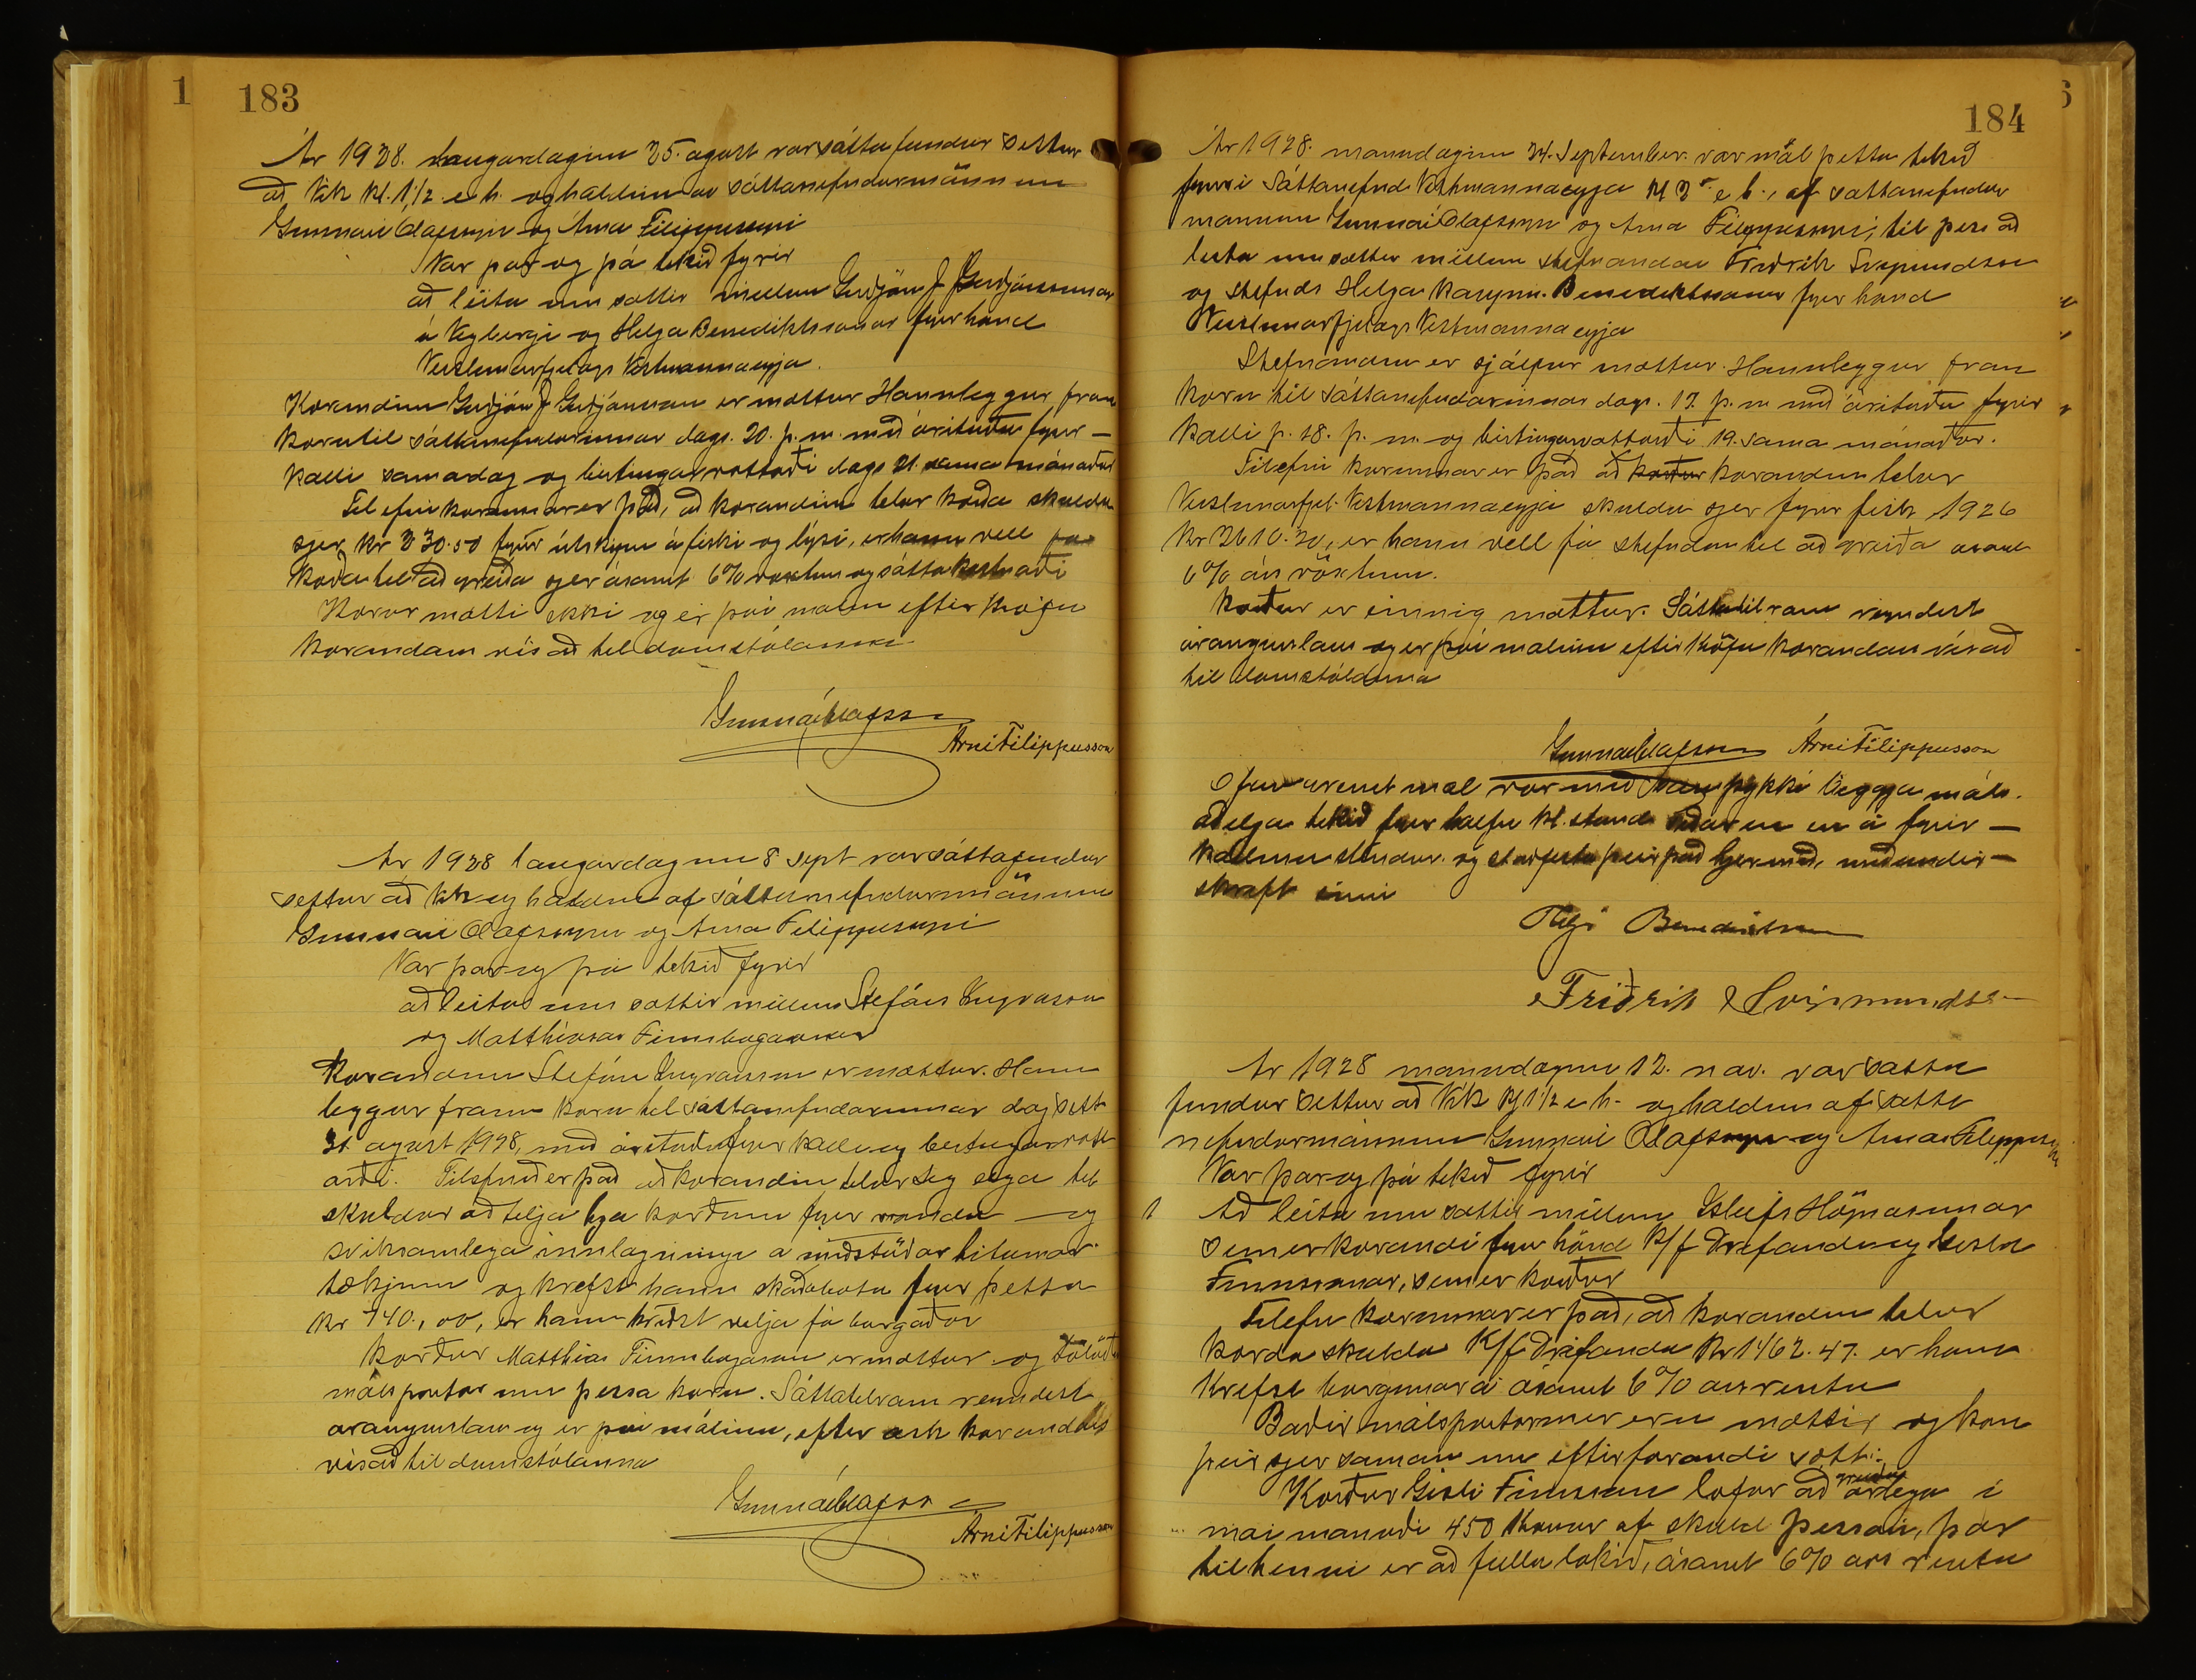 1
183
Ár 1928. laugardaginn 25. agust var sáttafundur settur
að Vik kl. 1 1/2 e h. og haldinn af sáttanefndarmönnum
Gunnari Ólafssyni og Árna Filippussyni
Var þar og þá tekið fyrir
að leita um sættir millum Guðjóns J Guðjónssonar
á Heybergi og Helga Benediktssonar fyrir hönd
Verslunarfjelags Vestmannaeyja.
Kærandinn Guðjón J Guðjónsson er mættur Hann leggur fram
kæru til sáttanefndarinnar dags. 20. þ. m. með áritaðu fyrir-
kalli sama dag og birtingarvottorði dags 21. sama mánaðar
Tilefni kærunnar er það, að kærandinn telur kærða skulda
sjer kr 330.50 fyrir útskipun á fiski og lýsi, er hann vill fá
kærða til að greiða sjer ásamt 6% vöxtum og sáttakostnaði
Kærður mætti ekki og er því málinu eftir kröfu
kærandans vísað til domstólanna
Gunnar Ólafsson
Árni Filippusson
Ár 1928 laugardaginn 8 sept var sáttafundur
settur að Vik og haldinn af sáttanefndarmönnum
Gunnari Ólafssyni og Árna Filippussyni
Var þar og þá tekið fyrir
að leita um sættir millum Stefáns Ingvarssonar
og Matthíasar Finnbogasonar
Kærandinn Stefán Ingvarsson er mættur. Hann
leggur fram kæru til sáttanefndarinnar dagsett
31. agust 1928, með árituðu fyrirkalli og birtingarvott-
orði. Tilefnið er það að kærandinn telur sig eiga til
skuldar að telja hja kærðum fyrir vonda og
sviksamlega innlagningu a miðstöðvar hitunar
tækjum og krefst hann skaðabota fyrir þetta
kr 740.,00, er hann kveðst vilja fá borgaðar
Kærður Matthías Finnbogason er mættur og
málspartar um þessa kæru. Sáttatilraun reyndist
arangurslaus og er því málinu, eftir ósk kærandans
vísað til domstólanna
Gunnar Ólafsson
Árni Filippusson
184
Ár 1928. manudaginn 24. September. var mál þetta tekið
fyrir í Sáttanefnd Vestmannaeyja kl 3 e h., af sáttanefndar
mönnum Gunnari Ólafssyni og Árna Filippussyni, til þess að
leita um sættir millum stefnandans Friðrik Svipmundssonar
og stefnds Helga kaupm. Benediktssonar fyrir hönd
Verslunarfjelags Vestmannaeyja
Stefnandinn er sjálfur mættur. Hann leggur fram
kæru til sáttanefndarinnar dags. 17. þ. m með árituðu fyrir
kalli þ. 18. þ. m. og birtingarvottorði 19. sama mánaðar.
Tilefni kærunnar er það að kærandinn telur
Verslunarfjel. Vestmannaeyja skulda sjer fyrir fisk 1926
kr 2610.20, er hann vill fá stefndan til að greiða asamt
6% árs vöxtum.
Kærður er einnig mættur. Sáttatilraun reyndist
árangurslaus og er því málinu eftir kröfu kærandans vísað
til domstólanna
Gunnar Ólafsson Árni Filippusson
Ofangreint mal var með samþykki beggja máls-
aðelja tekið fyrir halfri kl. stund síðar en en á fyrir-
kallinu stendur. og staðfesta þeir það hjermeð, með undir-
skrift sinni
Helgi Benediktsson
Friðrik Svipmundsson
Ár 1928 manudaginn 12. nov. var satta
fundur settur að Vik kl 1 1/2 e h. og haldinn af satta
nefndarmönnum Gunnari Ólafssyni og Árna Filippussyni
Var þar og þá tekið fyrir
1 Að leita um sættir millum Isleifs Högnasonar
sem er kærandi fyrir hönd K/f Drifanda og Gisla
Finnssonar, sem er kærður
Tilefni kærunnar er það, að kærandinn telur
kærða skulda K/f Drifanda kr 1462.47. er hann
krefst borgunar á ásamt 6% ars rentu
Baðir málspartarnir eru mættir, og kom
þeir sjer saman um eftirfarandi sátt:
Kærður Gisli Finnsson lofar að greiða árlega í
mai manuði 450 kronur af skuld þessari, þar
til henni er að fullu lokið, ásamt 6% ars rentu